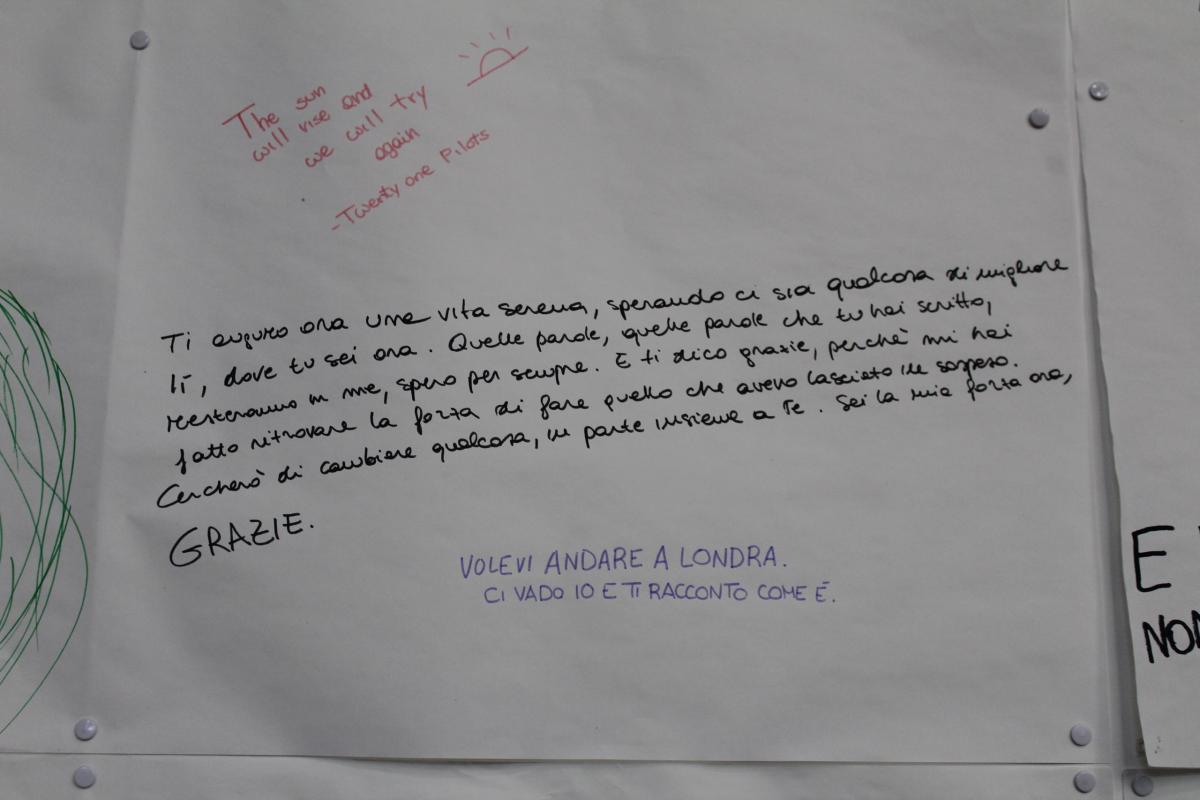 The sun
will rise and
we will try
again
- Twenty one Pilots
Ti auguro ora una vita serena, sperando ci sia qualcosa di migliore
lì, dove tu sei ora. Quelle parole, quelle parole che tu hai scritto,
resteranno in me, spero per sempre. E ti dico grazie, perchè mi hai
fatto ritrovare la forza di fare quello che avevo lasciato in sospeso.
Cercherò di cambiare qualcosa, in parte insieme a Te. Sei la mia forza ora,
GRAZIE.
VOLEVI ANDARE A LONDRA.
CI VADO IO E TI RACCONTO COME È.
E
NON